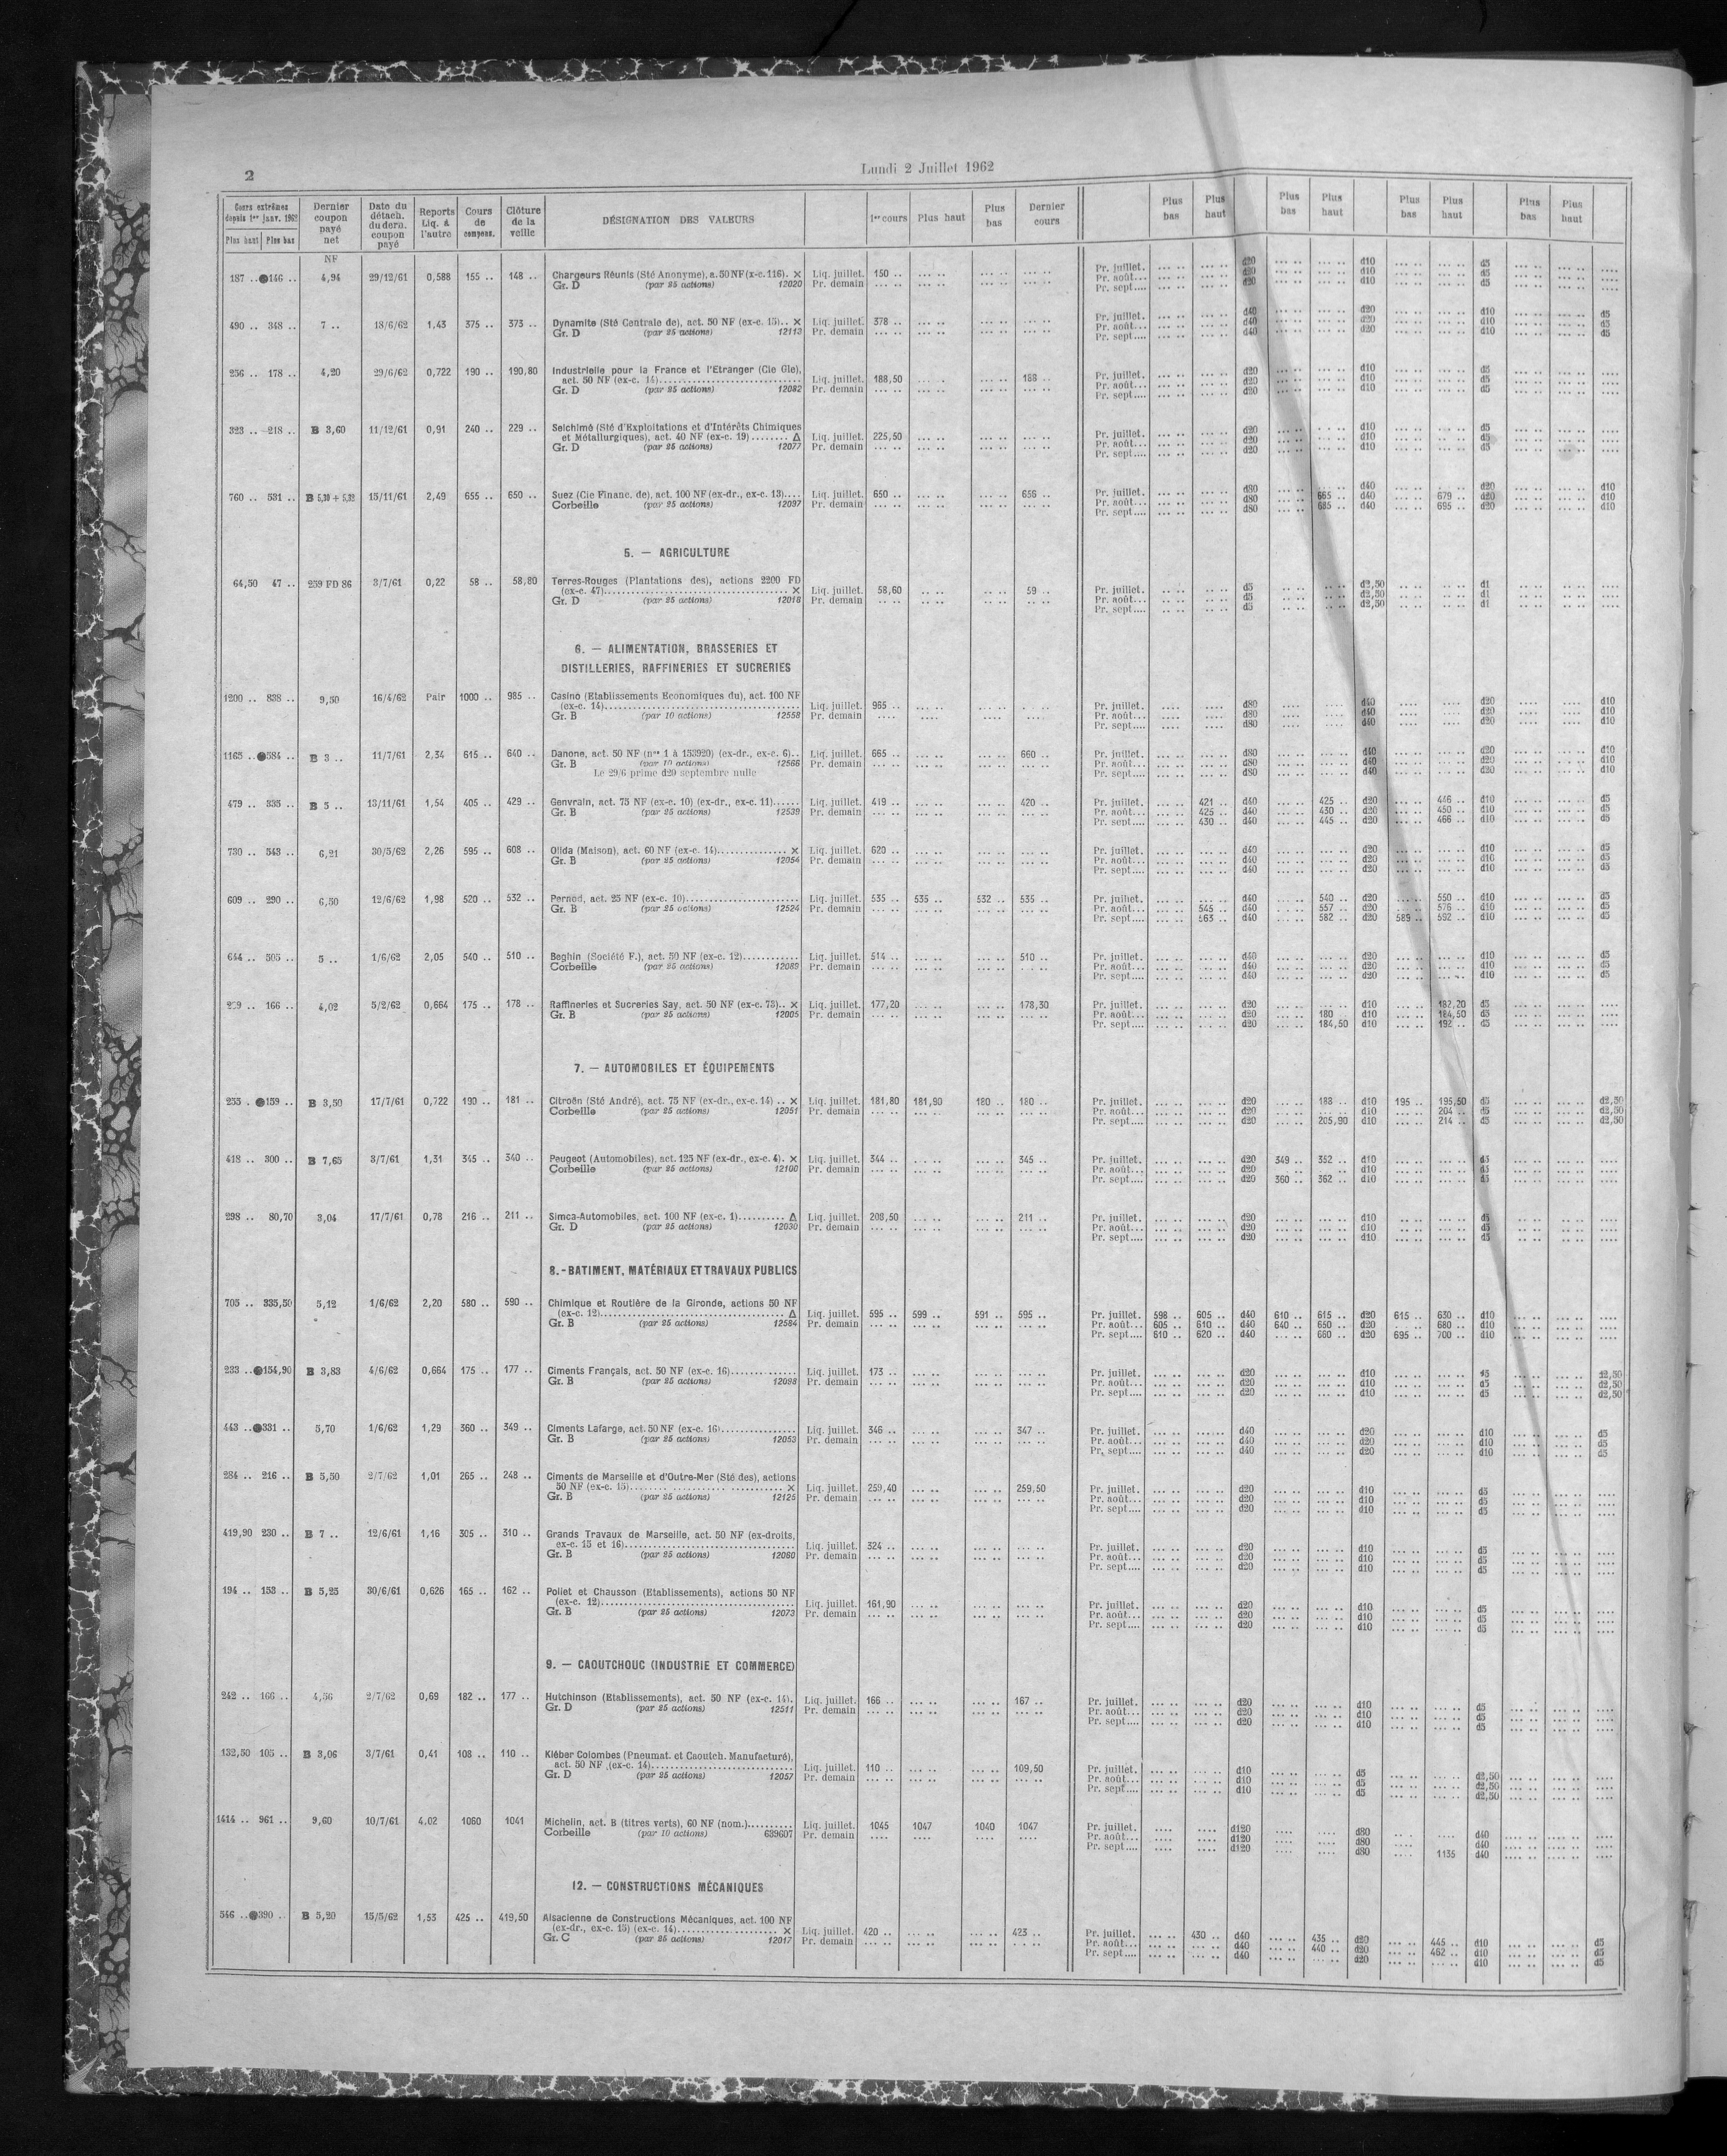 2
Lundi 2 Juillet 1962
Cours extrêmes depuis 1er janv. 1962 Plus haut Plus bas | Dernier coupon payé net | Date du détach. du dern. coupon payé | Reports Liq. à l'autre | Cours de compens. | Clôture de la veille | DÉSIGNATION DES VALEURS | 1er cours | Plus haut | Plus bas | Dernier cours | Plus bas | Plus haut | Plus bas | Plus haut | Plus bas | Plus haut | Plus bas | Plus haut
NF
187 .. 146 .. 4,94 29/12/61 0,588 155 .. 148 .. Chargeurs Réunis (Sté Anonyme), a. 50 NF (x-c. 116). × Liq. juillet. 150 .. Pr. juillet. d20 d10 d5
Gr. D (par 25 actions) 12020 Pr. demain Pr. août... d20 d10 d5
Pr. sept.... d20 d10 d5
490 .. 348 .. 7 .. 18/6/62 1,43 375 .. 373 .. Dynamite (Sté Centrale de), act. 50 NF (ex-c. 15).. × Liq. juillet. 378 .. Pr. juillet. d40 d20 d10 d5
Gr. D (par 25 actions) 12113 Pr. demain Pr. août... d40 d20 d10 d5
Pr. sept.... d40 d20 d10 d5
256 .. 178 .. 4,20 29/6/62 0,722 190 .. 190,80 Industrielle pour la France et l'Etranger (Cie Gle),
act. 50 NF (ex-c. 14)... Liq. juillet. 188,50 188 .. Pr. juillet. d20 d10 d5
Gr. D (par 25 actions) 12082 Pr. demain Pr. août... d20 d10 d5
Pr. sept.... d20 d10 d5
323 .. 218 .. B 3,60 11/12/61 0,91 240 .. 229 .. Selchimé (Sté d'Exploitations et d'Intérêts Chimiques
et Métallurgiques), act. 40 NF (ex-c. 19)........ Δ Liq. juillet. 225,50 Pr. juillet. d20 d10 d5
Gr. D (par 25 actions) 12077 Pr. demain Pr. août... d20 d10 d5
Pr. sept.... d20 d10 d5
760 .. 531 .. B 5,30 + 5,32 15/11/61 2,49 655 .. 650 .. Suez (Cie Financ. de), act. 100 NF (ex-dr., ex-c. 13).... Liq. juillet. 650 .. 656 .. Pr. juillet. d80 d40 d20 d10
Corbeille (par 25 actions) 12097 Pr. demain Pr. août... d80 665 .. d40 679 .. d20 d10
Pr. sept.... d80 685 .. d40 695 .. d20 d10
5. — AGRICULTURE
64,50 47 .. 259 FD 86 3/7/61 0,22 58 .. 58,80 Terres-Rouges (Plantations des), actions 2200 FD
(ex-c. 47)... × Liq. juillet. 58,60 59 .. Pr. juillet. d5 d2,50 d1
Gr. D (par 25 actions) 12018 Pr. demain Pr. août... d5 d2,50 d1
Pr. sept.... d5 d2,50 d1
6. — ALIMENTATION, BRASSERIES ET
DISTILLERIES, RAFFINERIES ET SUCRERIES
1200 .. 838 .. 9,50 16/4/62 Pair 1000 .. 985 .. Casino (Etablissements Economiques du), act. 100 NF
(ex-c. 14)... Liq. juillet. 965 .. Pr. juillet. d80 d40 d20 d10
Gr. B (par 10 actions) 12558 Pr. demain Pr. août... d80 d40 d20 d10
Pr. sept.... d80 d40 d20 d10
1165 .. 584 .. B 3 .. 11/7/61 2,34 615 .. 640 .. Danone, act. 50 NF (nos 1 à 153920) (ex-dr., ex-c. 6).. Liq. juillet. 665 .. 660 .. Pr. juillet. d80 d40 d20 d10
Gr. B (par 10 actions) 12566 Pr. demain Pr. août... d80 d40 d20 d10
Le 29/6 prime d20 septembre nulle Pr. sept.... d80 d40 d20 d10
479 .. 335 .. B 5 .. 13/11/61 1,54 405 .. 429 .. Genvrain, act. 75 NF (ex-c. 10) (ex-dr., ex-c. 11)...... Liq. juillet. 419 .. 420 .. Pr. juillet. 421 .. d40 425 .. d20 446 .. d10 d5
Gr. B (par 25 actions) 12539 Pr. demain Pr. août... 425 .. d40 430 .. d20 450 .. d10 d5
Pr. sept.... 430 .. d40 445 .. d20 466 .. d10 d5
730 .. 543 .. 6,21 30/5/62 2,26 595 .. 608 .. Olida (Maison), act. 60 NF (ex-c. 14)... × Liq. juillet. 620 .. Pr. juillet. d40 d20 d10 d5
Gr. B (par 25 actions) 12054 Pr. demain Pr. août... d40 d20 d10 d5
Pr. sept.... d40 d20 d10 d5
609 .. 290 .. 6,50 12/6/62 1,98 520 .. 532 .. Pernod, act. 25 NF (ex-c. 10)... Liq. juillet. 535 .. 535 .. 532 .. 535 .. Pr. juillet. d40 540 .. d20 550 .. d10 d5
Gr. B (par 25 actions) 12524 Pr. demain Pr. août... 545 .. d40 557 .. d20 576 .. d10 d5
Pr. sept.... 563 .. d40 582 .. d20 589 .. 592 .. d10 d5
644 .. 505 .. 5 .. 1/6/62 2,05 540 .. 510 .. Beghin (Société F.), act. 50 NF (ex-c. 12)... Liq. juillet. 514 .. 510 .. Pr. juillet. d40 d20 d10 d5
Corbeille (par 25 actions) 12089 Pr. demain Pr. août... d40 d20 d10 d5
Pr. sept.... d40 d20 d10 d5
166 .. 4,02 5/2/62 0,664 175 .. 178 .. Raffineries et Sucreries Say, act. 50 NF (ex-c. 73).. × Liq. juillet. 177,20 178,30 Pr. juillet. d20 d10 182,20 d5
Gr. B (par 25 actions) 12005 Pr. demain Pr. août... d20 180 .. d10 184,50 d5
Pr. sept.... d20 184,50 d10 192 .. d5
7. — AUTOMOBILES ET ÉQUIPEMENTS
255 . 159 .. B 3,50 17/7/61 0,722 190 .. 181 .. Citroën (Sté André), act. 75 NF (ex-dr., ex-c. 14) .. × Liq. juillet. 181,80 181,90 180 .. 180 .. Pr. juillet. d20 188 .. d10 195 .. 195,50 d5 d2,50
Corbeille (par 25 actions) 12051 Pr. demain Pr. août... d20 d10 204 .. d5 d2,50
Pr. sept.... d20 205,90 d10 214 .. d5 d2,50
418 .. 300 .. B 7,65 3/7/61 1,31 345 .. 340 .. Peugeot (Automobiles), act. 125 NF (ex-dr., ex-c. 4). × Liq. juillet. 344 .. 345 .. Pr. juillet. d20 349 .. 352 .. d10 d5
Corbeille (par 25 actions) 12100 Pr. demain Pr. août... d20 d10 d5
Pr. sept.... d20 360 .. 362 .. d10 d5
298 .. 80,70 3,04 17/7/61 0,78 216 .. 211 .. Simca-Automobiles, act. 100 NF (ex-c. 1).......... Δ Liq. juillet. 208,50 211 .. Pr. juillet. d20 d10 d5
Gr. D (par 25 actions) 12030 Pr. demain Pr. août... d20 d10 d5
Pr. sept.... d20 d10 d5
8.- BATIMENT, MATÉRIAUX ET TRAVAUX PUBLICS
705 .. 335,50 5,12 1/6/62 2,20 580 .. 590 .. Chimique et Routière de la Gironde, actions 50 NF
(ex-c. 12)... Δ Liq. juillet. 595 .. 599 .. 591 .. 595 .. Pr. juillet. 598 .. 605 .. d40 610 .. 615 .. d20 615 .. 630 .. d10
Gr. B (par 25 actions) 12584 Pr. demain Pr. août... 605 .. 610 .. d40 640 .. 650 .. d20 680 .. d10
Pr. sept.... 610 .. 620 .. d40 660 .. d20 695 .. 700 .. d10
233 .. 154,90 B 3,83 4/6/62 0,664 175 .. 177 .. Ciments Français, act. 50 NF (ex-c. 16)... Liq. juillet. 173 .. Pr. juillet. d20 d10 d5 d2,50
Gr. B (par 25 actions) 12098 Pr. demain Pr. août... d20 d10 d5 d2,50
Pr. sept.... d20 d10 d5 d2,50
443 .. 331 .. 5,70 1/6/62 1,29 360 .. 349 .. Ciments Lafarge, act. 50 NF (ex-c. 16)... Liq. juillet. 346 .. 347 .. Pr. juillet. d40 d20 d10 d5
Gr. B (par 25 actions) 12053 Pr. demain Pr. août... d40 d20 d10 d5
Pr. sept.... d40 d20 d10 d5
284 .. 216 .. B 5,50 2/7/62 1,01 265 .. 248 .. Ciments de Marseille et d'Outre-Mer (Sté des), actions
50 NF (ex-c. 15)... × Liq. juillet. 259,40 259,50 Pr. juillet. d20 d10 d5
Gr. B (par 25 actions) 12125 Pr. demain Pr. août... d20 d10 d5
Pr. sept.... d20 d10 d5
419,90 230 .. B 7 .. 12/6/61 1,16 305 .. 310 .. Grands Travaux de Marseille, act. 50 NF (ex-droits,
ex-c. 15 et 16)... Liq. juillet. 324 .. Pr. juillet. d20 d10 d5
Gr. B (par 25 actions) 12060 Pr. demain Pr. août... d20 d10 d5
Pr. sept.... d20 d10 d5
194 .. 153 .. B 5,25 30/6/61 0,626 165 .. 162 .. Poliet et Chausson (Etablissements), actions 50 NF
(ex-c. 12)... Liq. juillet. 161,90 Pr. juillet. d20 d10 d5
Gr. B (par 25 actions) 12073 Pr. demain Pr. août... d20 d10 d5
Pr. sept.... d20 d10 d5
9. — CAOUTCHOUC (INDUSTRIE ET COMMERCE)
242 .. 166 .. 4,56 2/7/62 0,69 182 .. 177 .. Hutchinson (Etablissements), act. 50 NF (ex-c. 14). Liq. juillet. 166 .. 167 .. Pr. juillet. d20 d10 d5
Gr. D (par 25 actions) 12511 Pr. demain Pr. août... d20 d10 d5
Pr. sept.... d20 d10 d5
132,50 105 .. B 3,06 3/7/61 0,41 108 .. 110 .. Kléber Colombes (Pneumat. et Caoutch. Manufacturé),
act. 50 NF (ex-c. 14)... Liq. juillet. 110 .. 109,50 Pr. juillet. d10 d5 d2,50
Gr. D (par 25 actions) 12057 Pr. demain Pr. août... d10 d5 d2,50
Pr. sept.... d10 d5 d2,50
1414 .. 961 .. 9,60 10/7/61 4,02 1060 1041 Michelin, act. B (titres verts), 60 NF (nom.)... Liq. juillet. 1045 1047 1040 1047 Pr. juillet. d120 d80 d40
Corbeille (par 10 actions) 639607 Pr. demain Pr. août... d120 d80 d40
Pr. sept.... d120 d80 1135 d40
12. — CONSTRUCTIONS MÉCANIQUES
546 .. 390 .. B 5,20 15/5/62 1,53 425 .. 419,50 Alsacienne de Constructions Mécaniques, act. 100 NF
(ex-dr., ex-c. 15) (ex-c. 14)... × Liq. juillet. 420 .. 423 .. Pr. juillet. 430 .. d40 435 .. d20 445 .. d10 d5
Gr. C (par 25 actions) 12017 Pr. demain Pr. août... d40 440 .. d20 462 .. d10 d5
Pr. sept.... d40 d20 d10 d5